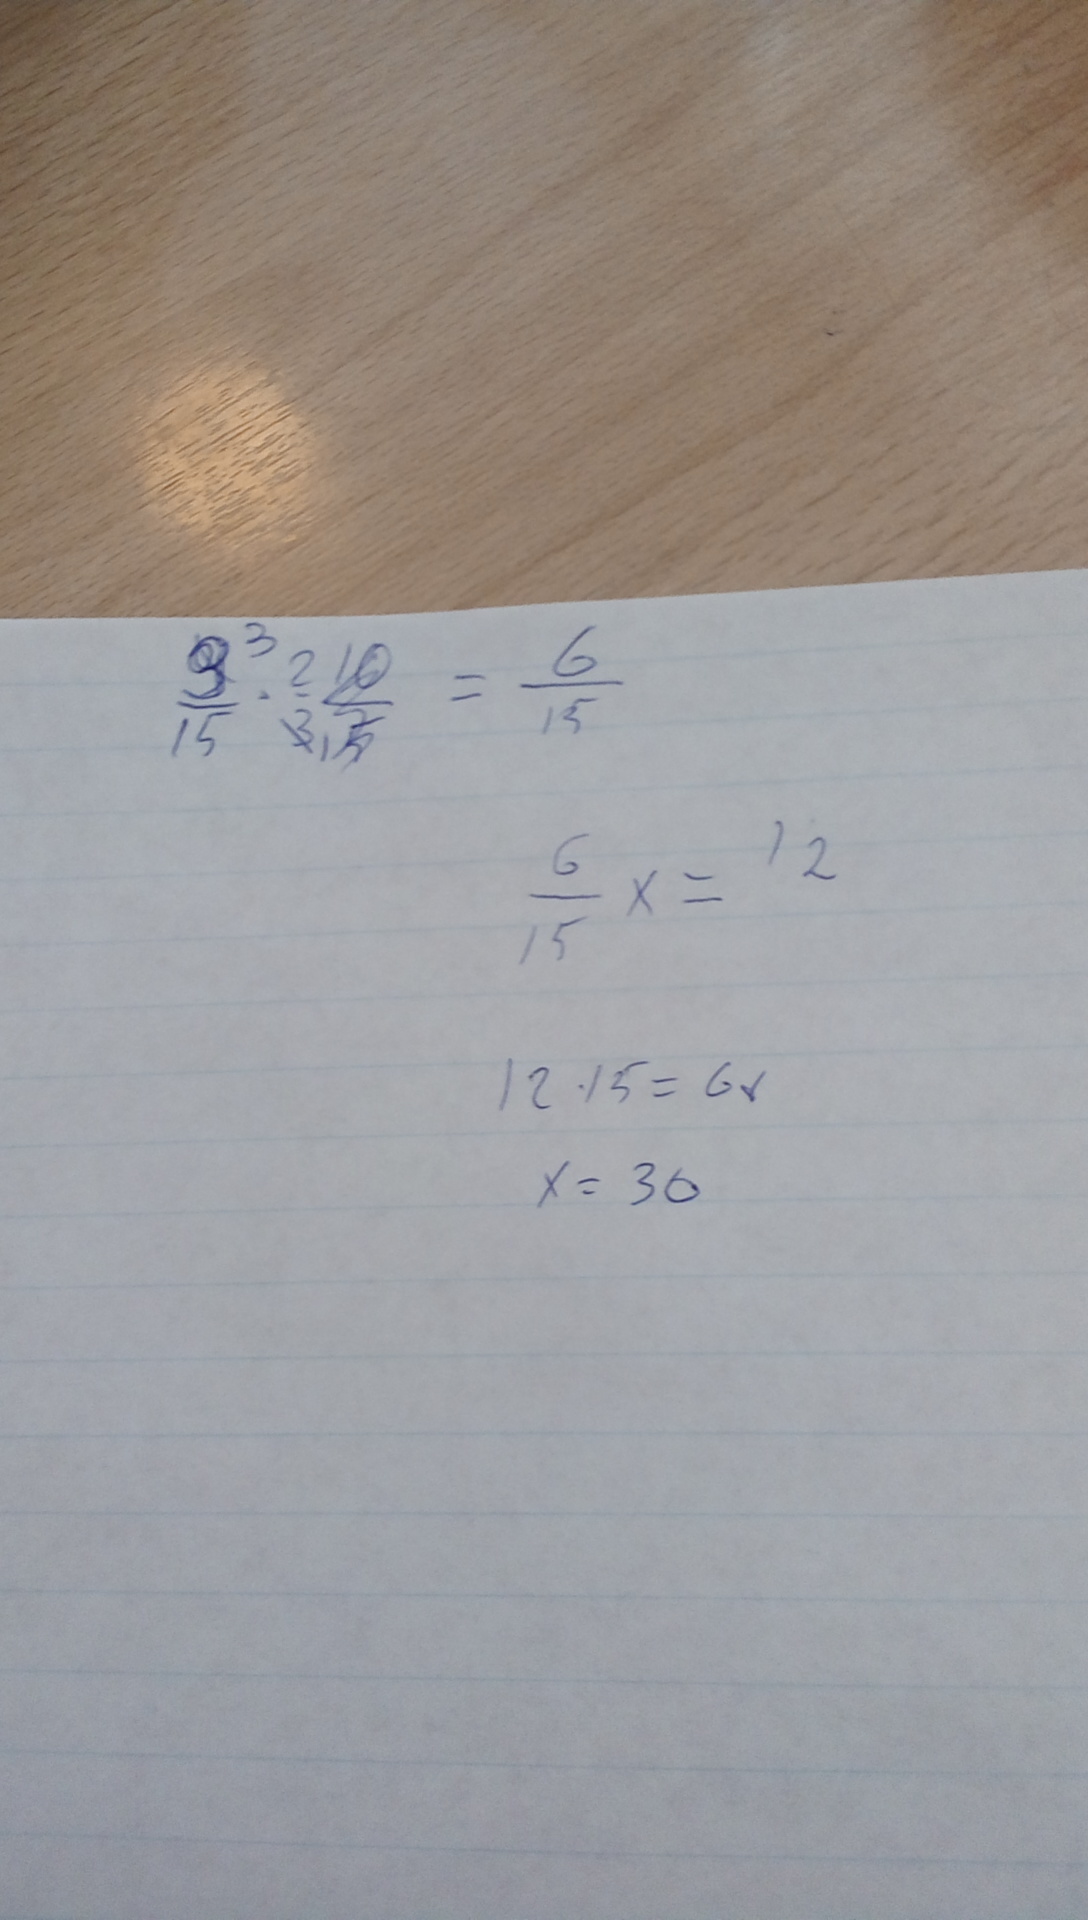 9/15 3 · 2/3 10/15 = 6/15
6/15 x = 12
12 · 15 = 6x
x = 30